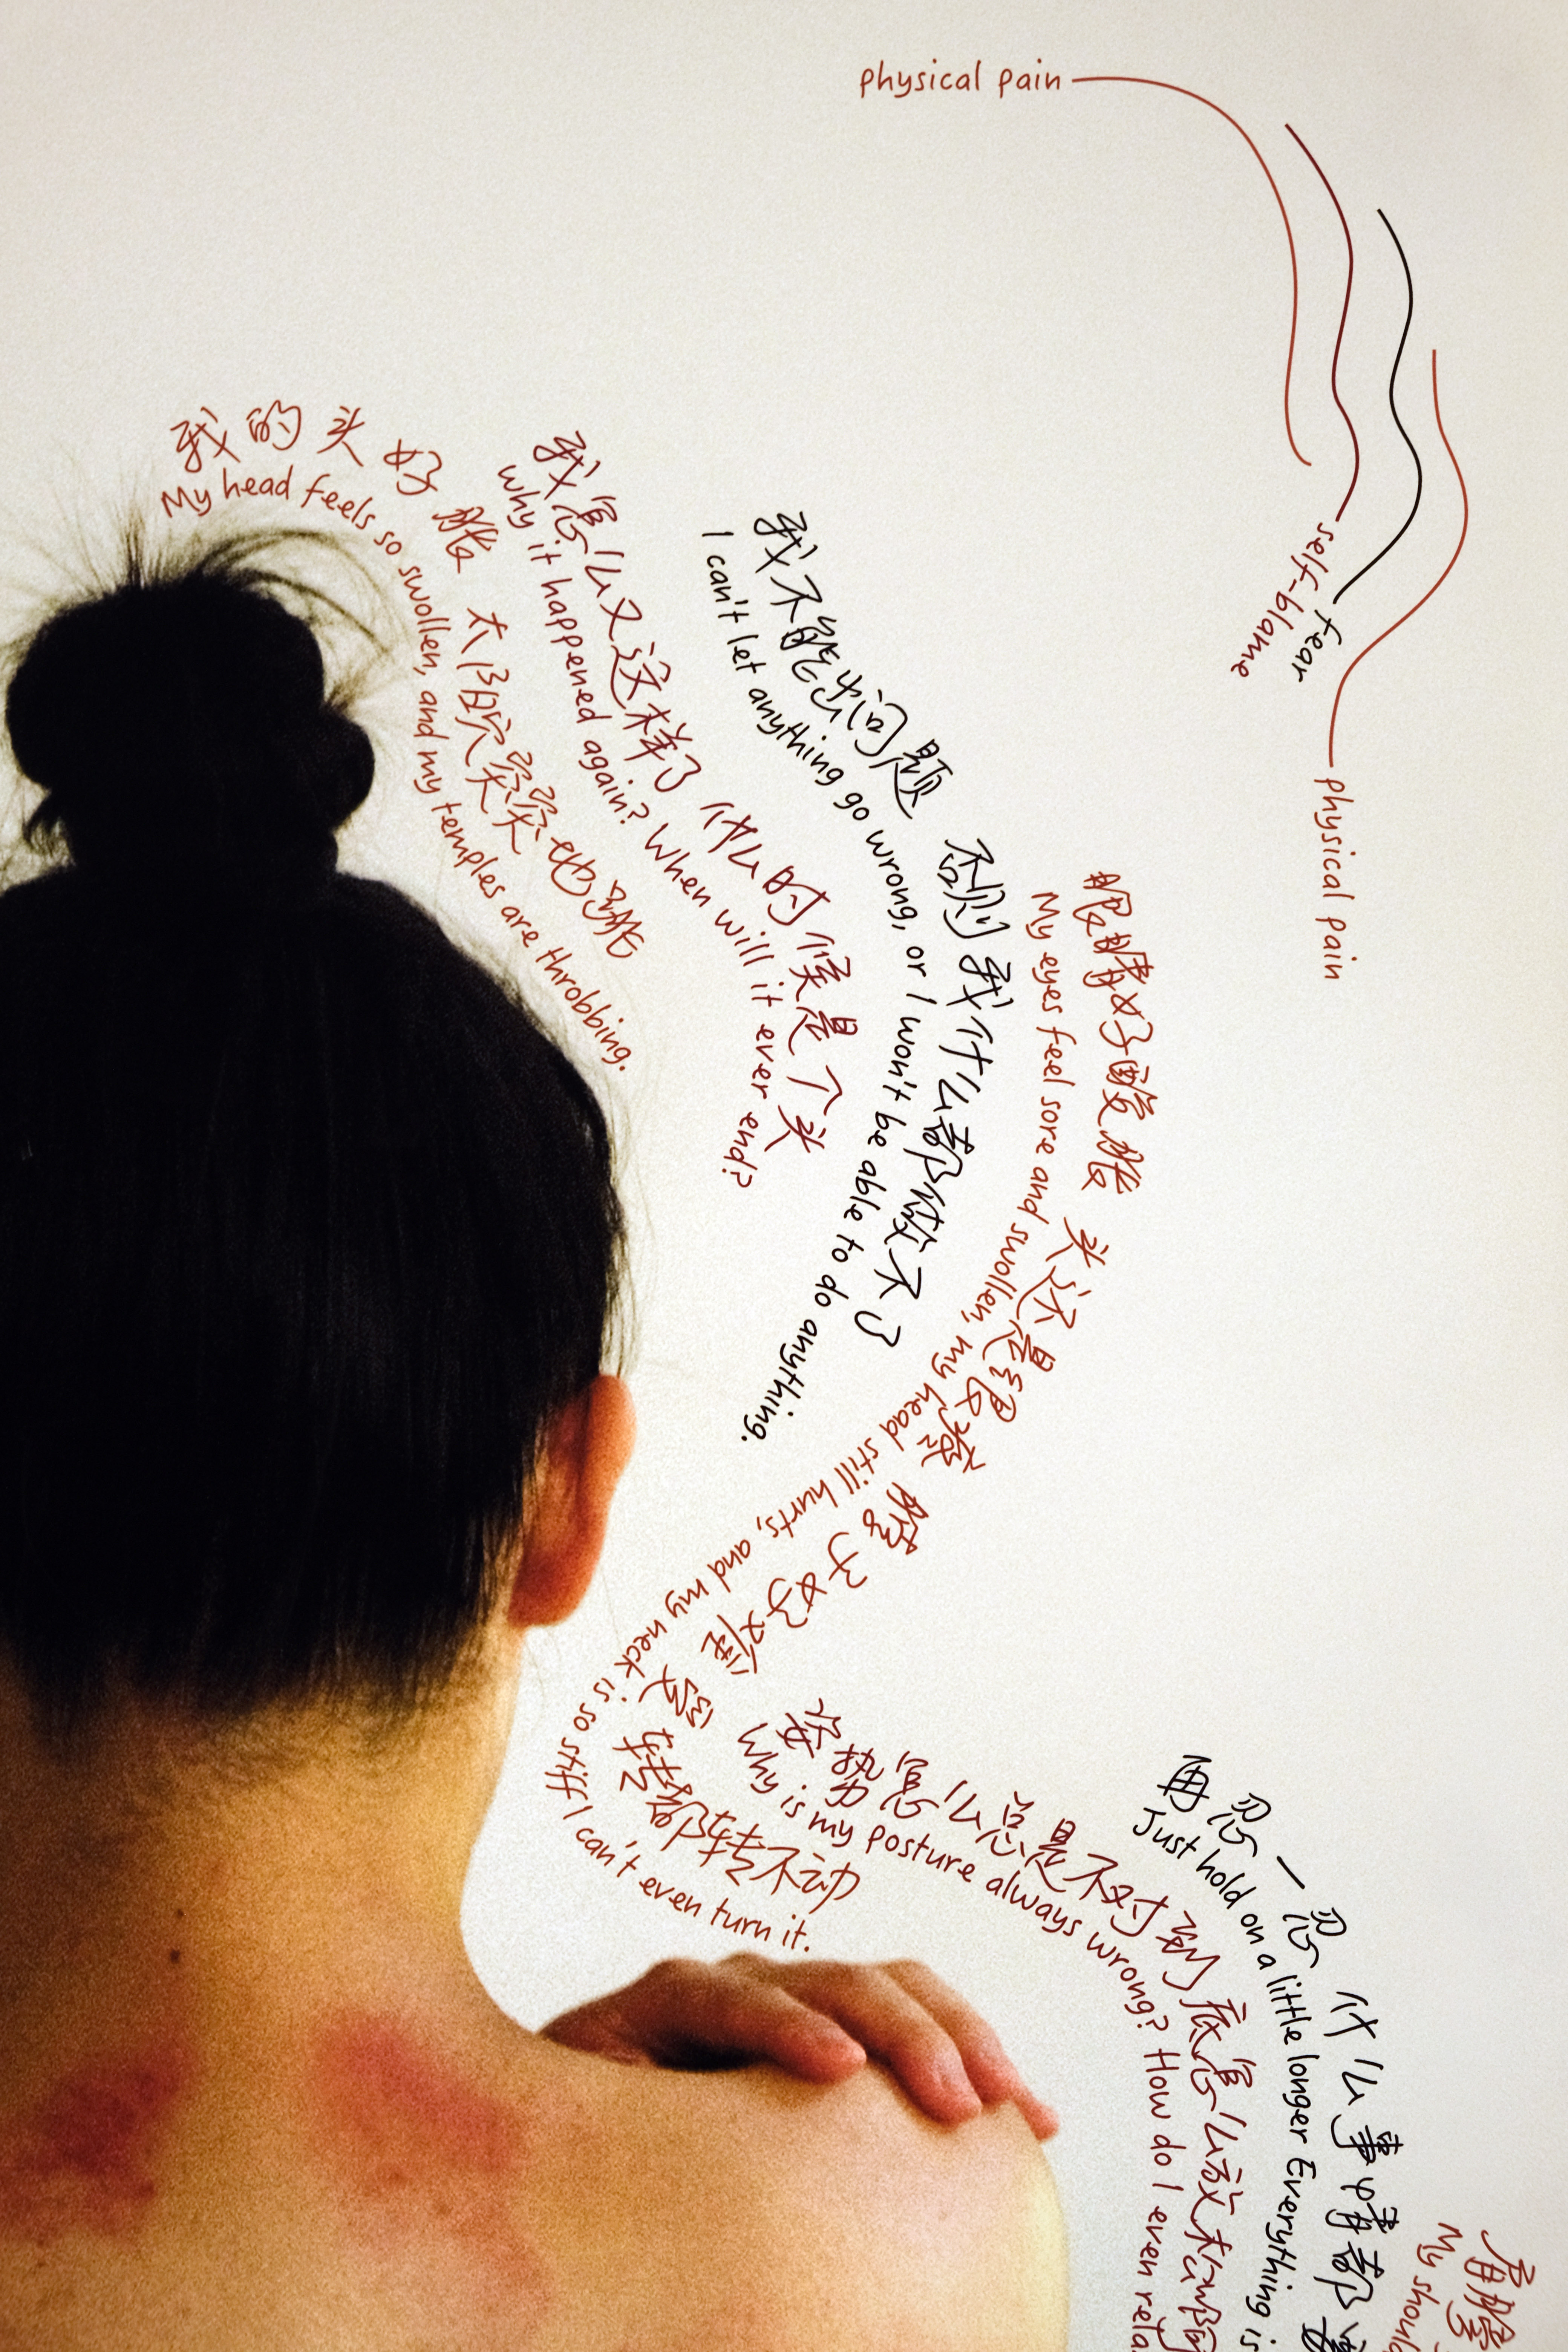 physical pain
self-blame
fear
physical pain
我的头好胀 太阳穴突突地跳
My head feels so swollen, and my temples are throbbing.
我怎么又这样了 什么时候是个头
Why it happened again? When will it ever end?
我不能出问题 否则我什么都做不了
I can't let anything go wrong, or I won't be able to do anything.
眼睛好酸胀 头还是很疼 脖子好僵硬 转都转不动
My eyes feel sore and swollen, my head still hurts, and my neck is so stiff I can't even turn it.
姿势怎么总是不对 到底怎么放松
Why is my posture always wrong? How do I even rela
再忍一忍 什么事情都
Just hold on a little longer Everything is
肩膀
My shoul